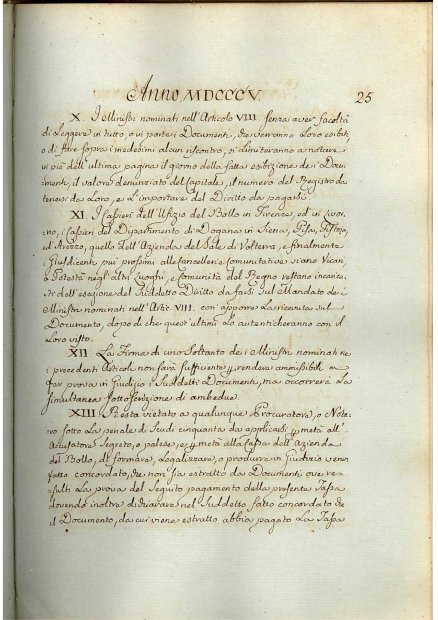 Anno MDCCCV. 25
X. I Ministri nominati nell'Articolo VIII. senza aver facoltà
di Leggere in tutto, o in parte i Documenti, che verranno Loro esibiti,
o di fare sopra i medesimi alcun riscontro, si limiteranno a notare
in piè dell'ultima pagina il giorno della fatta esibizione dei Docu-
menti, il valore denunziato del Capitale, il numero del Registro da
tenersi da Loro, e L'importare del Diritto da pagarsi.
XI. I Cassieri dell'Ufizio del Bollo in Firenze, ed in Livor-
no, i Cassieri del Dipartimento di Dogane in Siena, Pisa, Pistoja,
ed Arezzo, quello dell'Azienda del Sale di Volterra, e finalmente
i Giusdicenti più prossimi alle Cancellerie Comunitative siano Vicarj
o Potestà negli altri Luoghi, e Comunità del Regno restano incarica-
ti dell'esazione del suddetto Diritto da farsi sul Mandato dei
Ministri nominati nell'Artic. VIII. con apporre La ricevuta sul
Documento, dopo di che quest'ultimi Lo autenticheranno con il
Loro visto.
XII. La Firma di uno soltanto dei Ministri nominati ne
i precedenti Articoli non sarà sufficiente p. rendere ammissibile, e
far prova in Giudizio i suddetti Documenti, ma occorrerà La
simultanea sottoscrizione di ambedue.
XIII. Resta vietato a qualunque Procuratore, o Nota-
ro sotto La penale di Scudi cinquanta da applicarsi p. metà all'
Accusatore segreto, o palese, e p. metà alla Cassa dell'Azienda
del Bollo, di formare, Legalizzare, o produrre in Giudizio verun
fatto concordato, che non sia estratto da Documenti ove re-
sulti La prova del seguito pagamento della presente Tassa
dovendo inoltre dichiarare nel suddetto fatto concordato che
il Documento, da cui viene estratto abbia pagato La Tassa